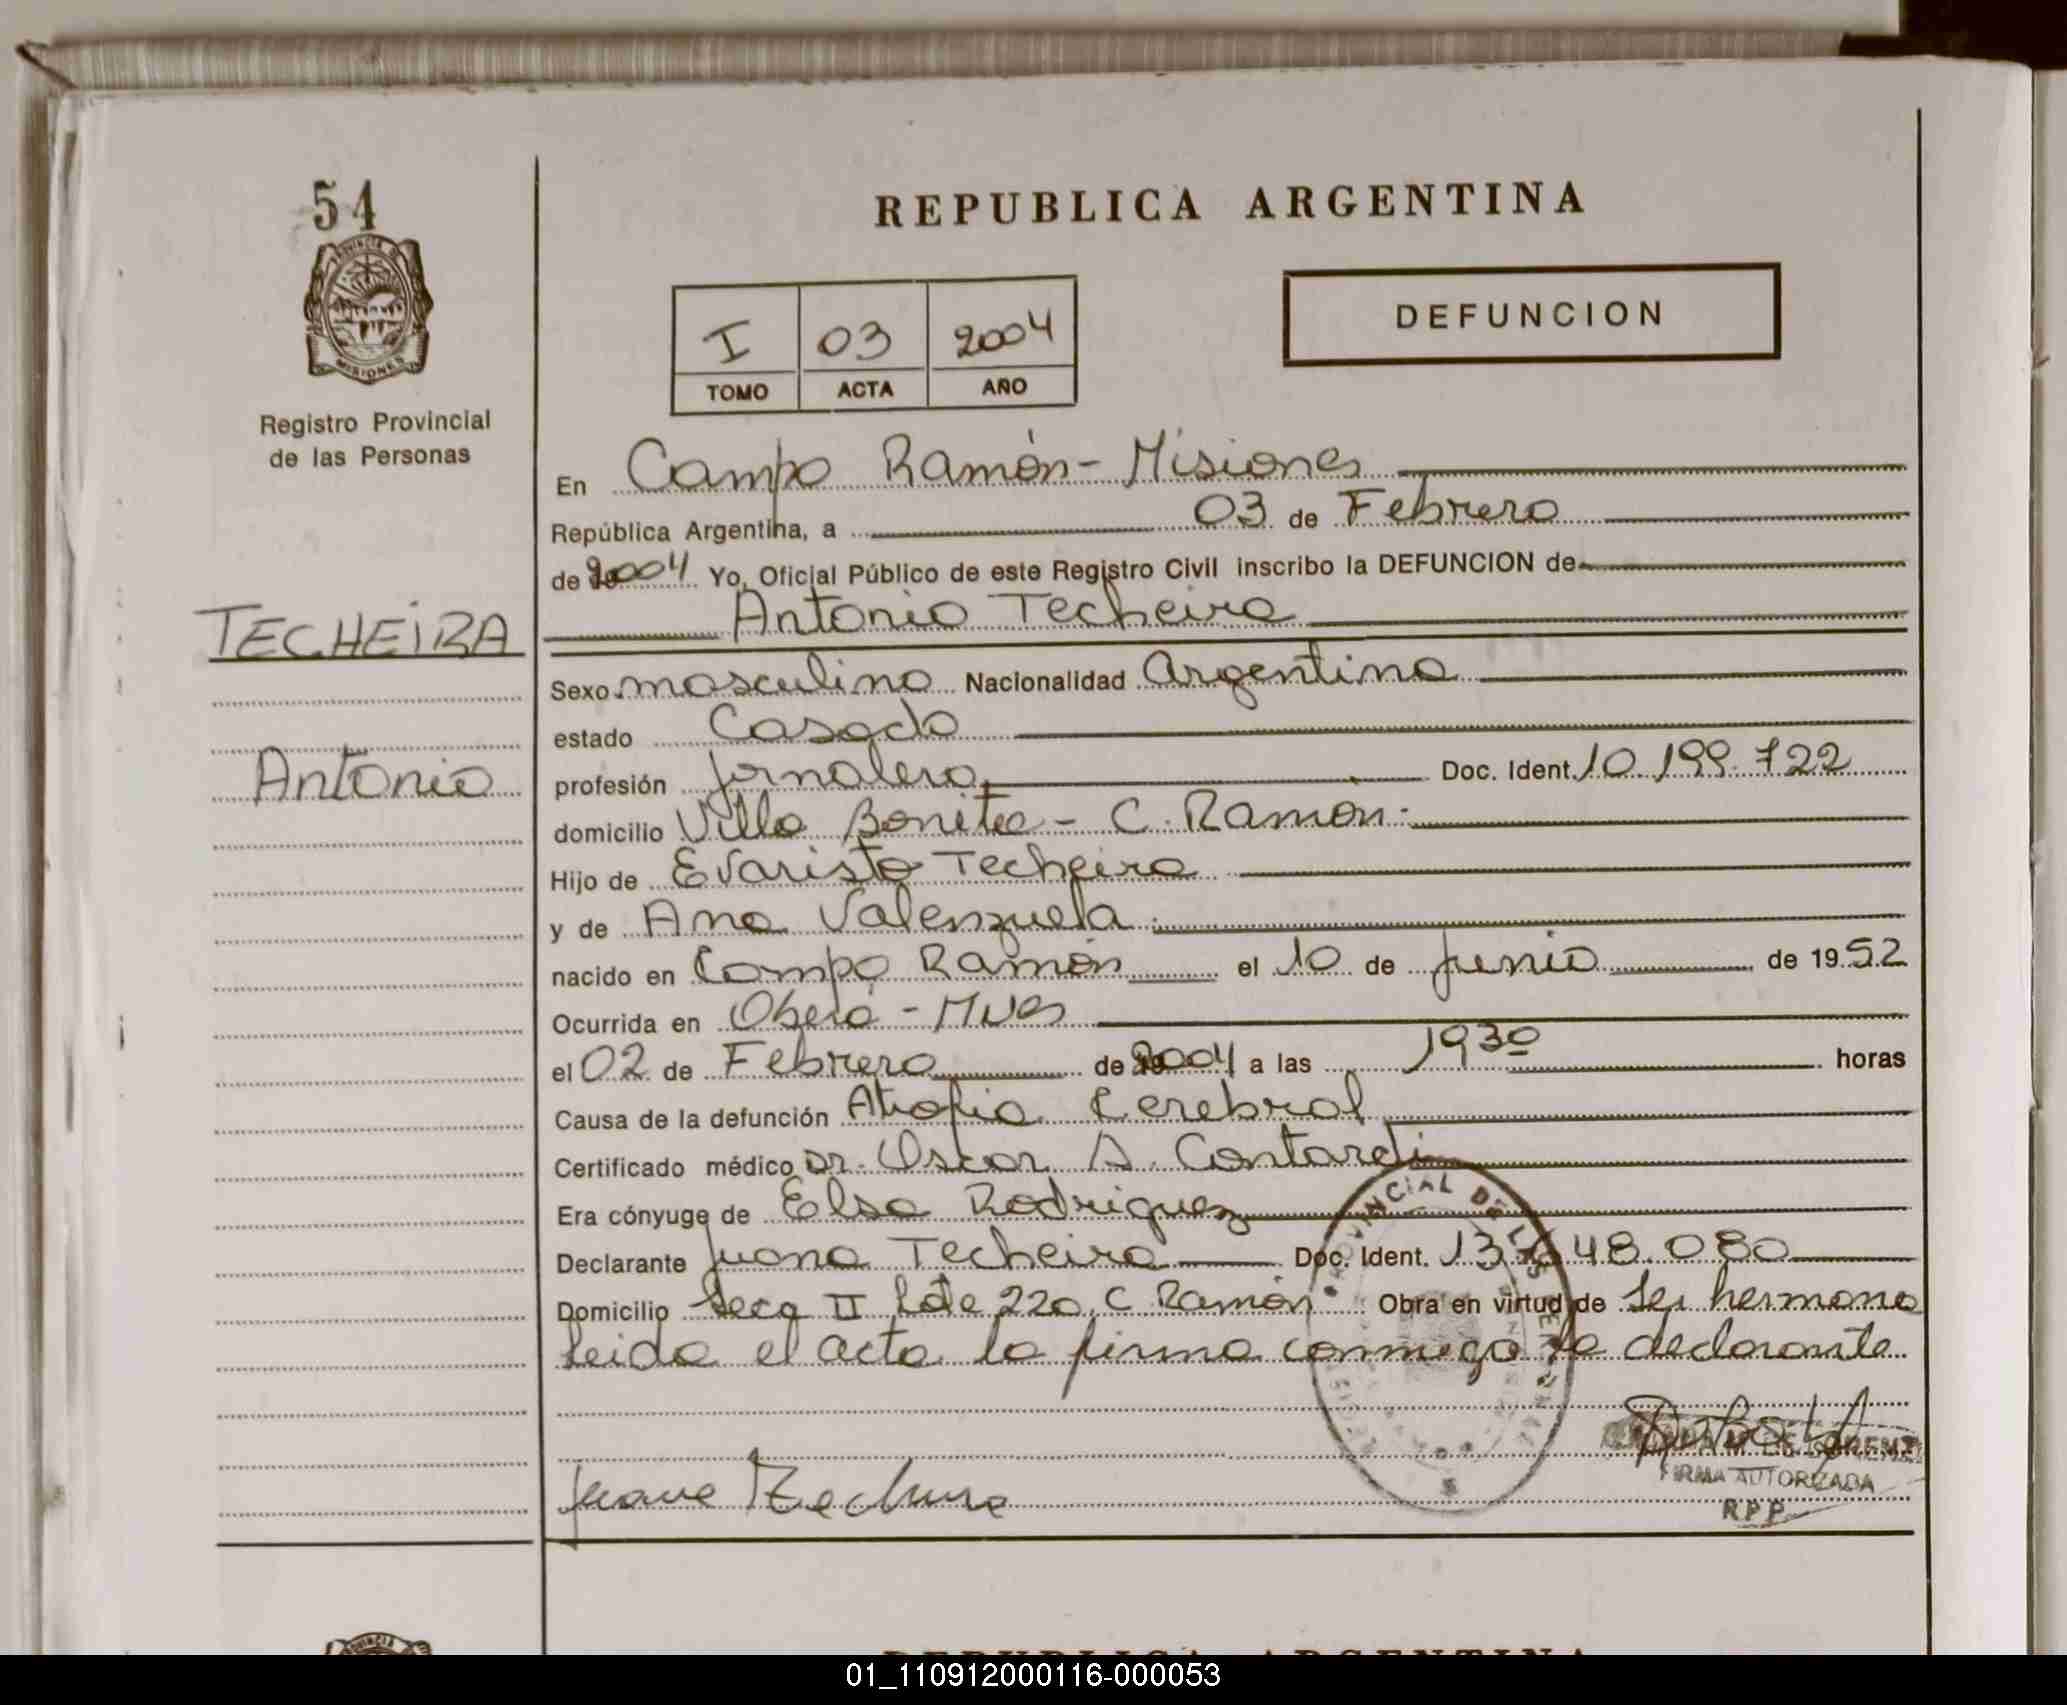 54
PROVINCIA DE
MISIONES
Registro Provincial
de las Personas
TECHEIRA
Antonio
REPUBLICA ARGENTINA
I 03 2004
TOMO ACTA AÑO
DEFUNCION
En Campo Ramón - Misiones
República Argentina, a 03 de Febrero
de 2004 Yo, Oficial Público de este Registro Civil inscribo la DEFUNCION de
Antonio Techeira
Sexo masculino Nacionalidad Argentina
estado Casado
profesión Jornalero Doc. Ident. 10.199.722
domicilio Villa Bonita - C. Ramón.
Hijo de Evaristo Techeira
y de Ana Valenzuela
nacido en Campo Ramón el 10 de Junio de 1952
Ocurrida en Oberá - Mnes
el 02 de Febrero de 2004 a las 19 30 horas
Causa de la defunción Atrofia Cerebral
Certificado médico Dr. Oscar A. Contardi
Era cónyuge de Elsa Rodriguez
Declarante Juana Techeira Doc. Ident. 13. 48.080
Domicilio Secc II Lote 220 C Ramón. Obra en virtud de ser hermana
leida el acta la firma conmigo la declarante
PROVINCIAL DE LAS PERSONAS
Juana Techeira
FIRMA AUTORIZADA
R.P.P.
REPUBLICA ARGENTINA
01_110912000116-000053